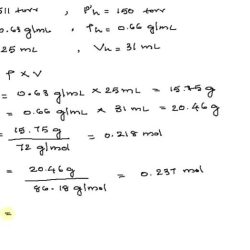 511 torr , P°h = 150 torr
0.63 g/mL , ρh = 0.66 g/mL
25 mL , Vh = 31 mL
ρ x V
= 0.63 g/mL x 25 mL = 15.75 g
= 0.66 g/mL x 31 mL = 20.46 g
= 15.75 g / 72 g/mol = 0.218 mol
= 20.46 g / 86.18 g/mol = 0.237 mol
=